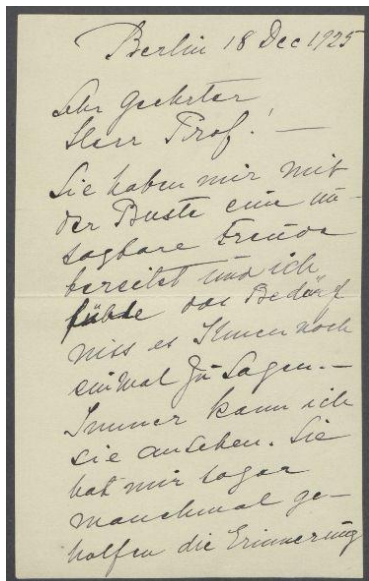 Berlin 18 Dec 1925
Sehr Geehrter
Herr Prof! —
Sie haben mir mit
der Buste eine un-
sagbare Freude
bereitet und ich
fühle das Bedürf
niss es Ihnen noch
einmal zu sagen. —
Immer kann ich
sie ansehen. Sie
hat mir sogar
manchmal ge-
holfen die Erinnerung